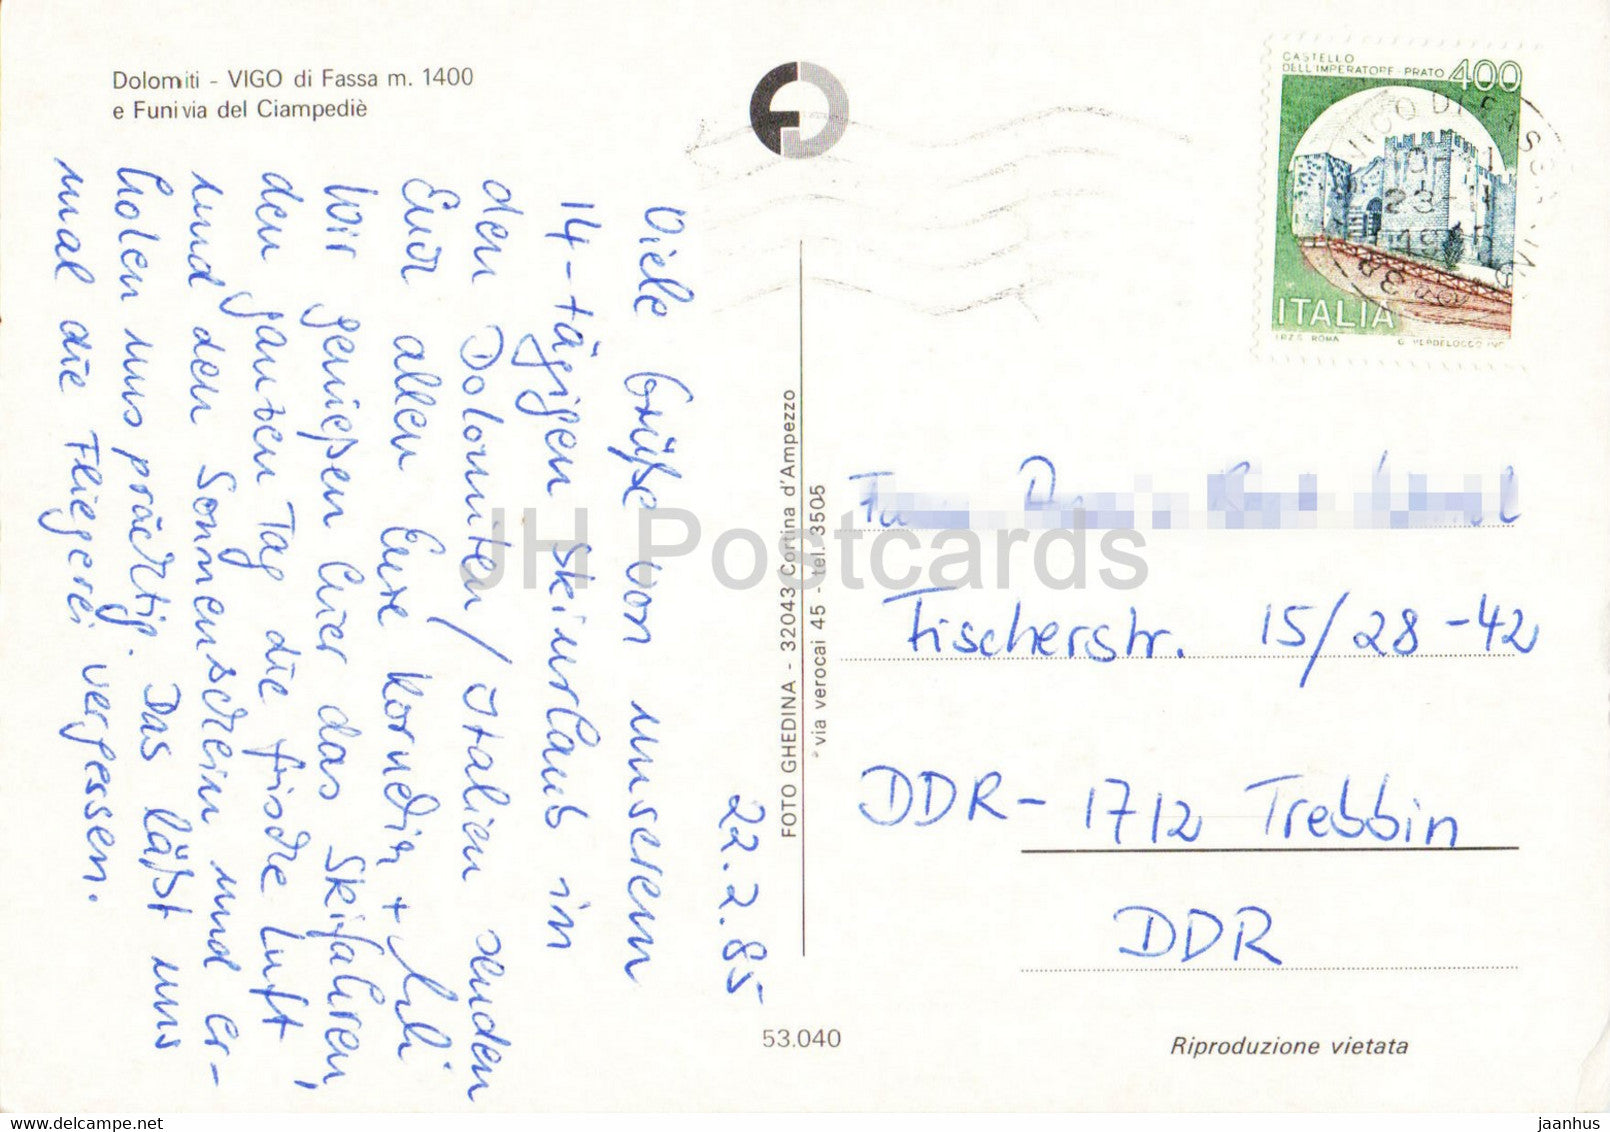 Dolomiti - VIGO di Fassa m. 1400
e Funivia del Ciampediè
CASTELLO
DELL'IMPERATORE-PRATO 400
ITALIA
I.P.Z.S. ROMA
VIGO DI FASSA
22.2.85
Viele Grüße von unserem
14-tägigen Skiurlaub in
den Dolomiten/Italien senden
Euch allen Eure
Wir genießen hier das Skifahren,
den ganzen Tag die frische Luft
und den Sonnenschein und er-
holen uns prächtig. Das läßt uns
mal die Fliegerei vergessen.
FOTO GHEDINA - 32043 Cortina d'Ampezzo
via verocai 45 - tel. 3505
Fischerstr. 15/28-42
DDR-1712 Trebbin
DDR
53.040
Riproduzione vietata
JH Postcards
delcampe.net
jaanhus